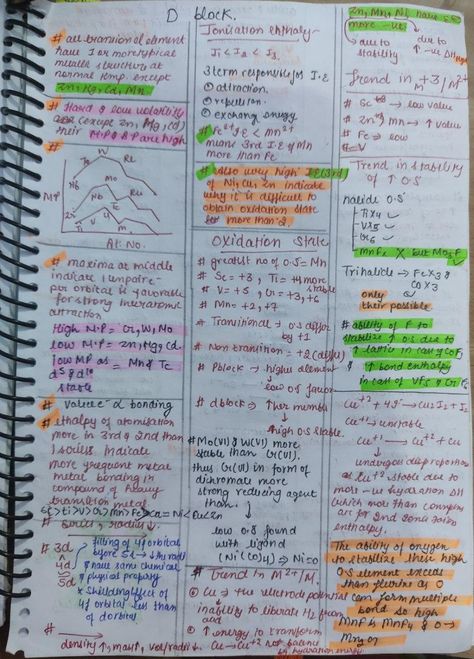 D block.
# all transition element
have 1 or more typical
metallic structure at
normal temp. except
Zn, Hg, Cd, Mn
# Hard & low volatility
(except Zn, Hg, Cd)
their M.P & B.P are high
MP
W
Re
Ta
Mo
Nb
Ru
Zr
Cr
V
Ti
At. No.
# maxima at middle
indicate 1 unpaire-
per orbital is favorable
for strong interatomic
attraction.
High M.P = Cr, W, Mo
low M.P = Zn, Hg, Cd.
low MP as = Mn & Tc
d5 & d10
stable
# valence e- α bonding
# ethalpy of atomisation
more in 3rd & 2nd than
1 series indicate
more frequent metal
metal bonding in
compound of heavy
transition metal
# series, radius ↓
# 3d
4d
5d
filling of 4f orbital
before 5d
have same chemical
& physical property
* Shielding effect of
4f orbital less than
of d orbital
density ↑, mass↑, vol/radius↓
Ionisation enthalpy-
I1 < I2 < I3
3 term responsible for I.E
① attraction.
② repulsion.
③ exchange energy
# Fe2+ I.E < Mn2+
means 3rd I.E of Mn
more than Fe
# also very high I.E (3rd)
of Ni, Cu, Zn indicate
why it is difficult to
obtain oxidation state
more than 2
Oxidation State
# greatest no of O.S = Mn
# Sc = +3, Ti = +4 more stable
# V = +5, Cr = +3, +6
# Mn = +2, +7
# Transitional → O.S differ
by +1
# Non transition = +2 (differ)
# P block → higher element
low O.S favor
# d block → ↑er member
high O.S stable.
# Mo(VI) & W(VI) more
stable than Cr(VI).
thus Cr(VI) in form of
dichromate more
strong reducing agent
than
low O.S found
with ligand
(Ni(CO)4) → Ni=0
# Trend in M2+/M.
① Cu → +ve electrode potential
inability to liberate H2 from
acid
② ↑ energy to transform
Cu → Cu+2 not balance
by hydration energy
Zn, Mn, Ni, have
more -ve
due to
stability
due to
↑ -ve ΔH hyd
Trend in M+3/M2+
# Sc+3 → low value
# Zn+3, Mn → ↑ value
# Fe → low
# V
Trend in stability
of ↑ O.S
halide O.S
TiX4
VF5
CrF6
MnF7 X but MnO3F
Trihalide → FeX3 &
CoX3
only
their possible.
# ability of F to
stabilize ↑ O.S due to
↑ lattice in case of CoF3
& ↑ bond enthalpy
in case of VF5 & CrF6
Cu+2 + 4I- → Cu2I2 + I2
Cu+1 → unstable
Cu+1 → Cu+2 + Cu
undergoes disproportion
as Cu+2 stable due to
more -ve hydration ΔH
which more than compens
ate for 2nd Ionisation
enthalpy.
The ability of oxygen
to stabilize these high
O.S element exceeds
than fluorine as O
can form multiple
bond so high
MnF is MnF4 & O →
Mn2O7